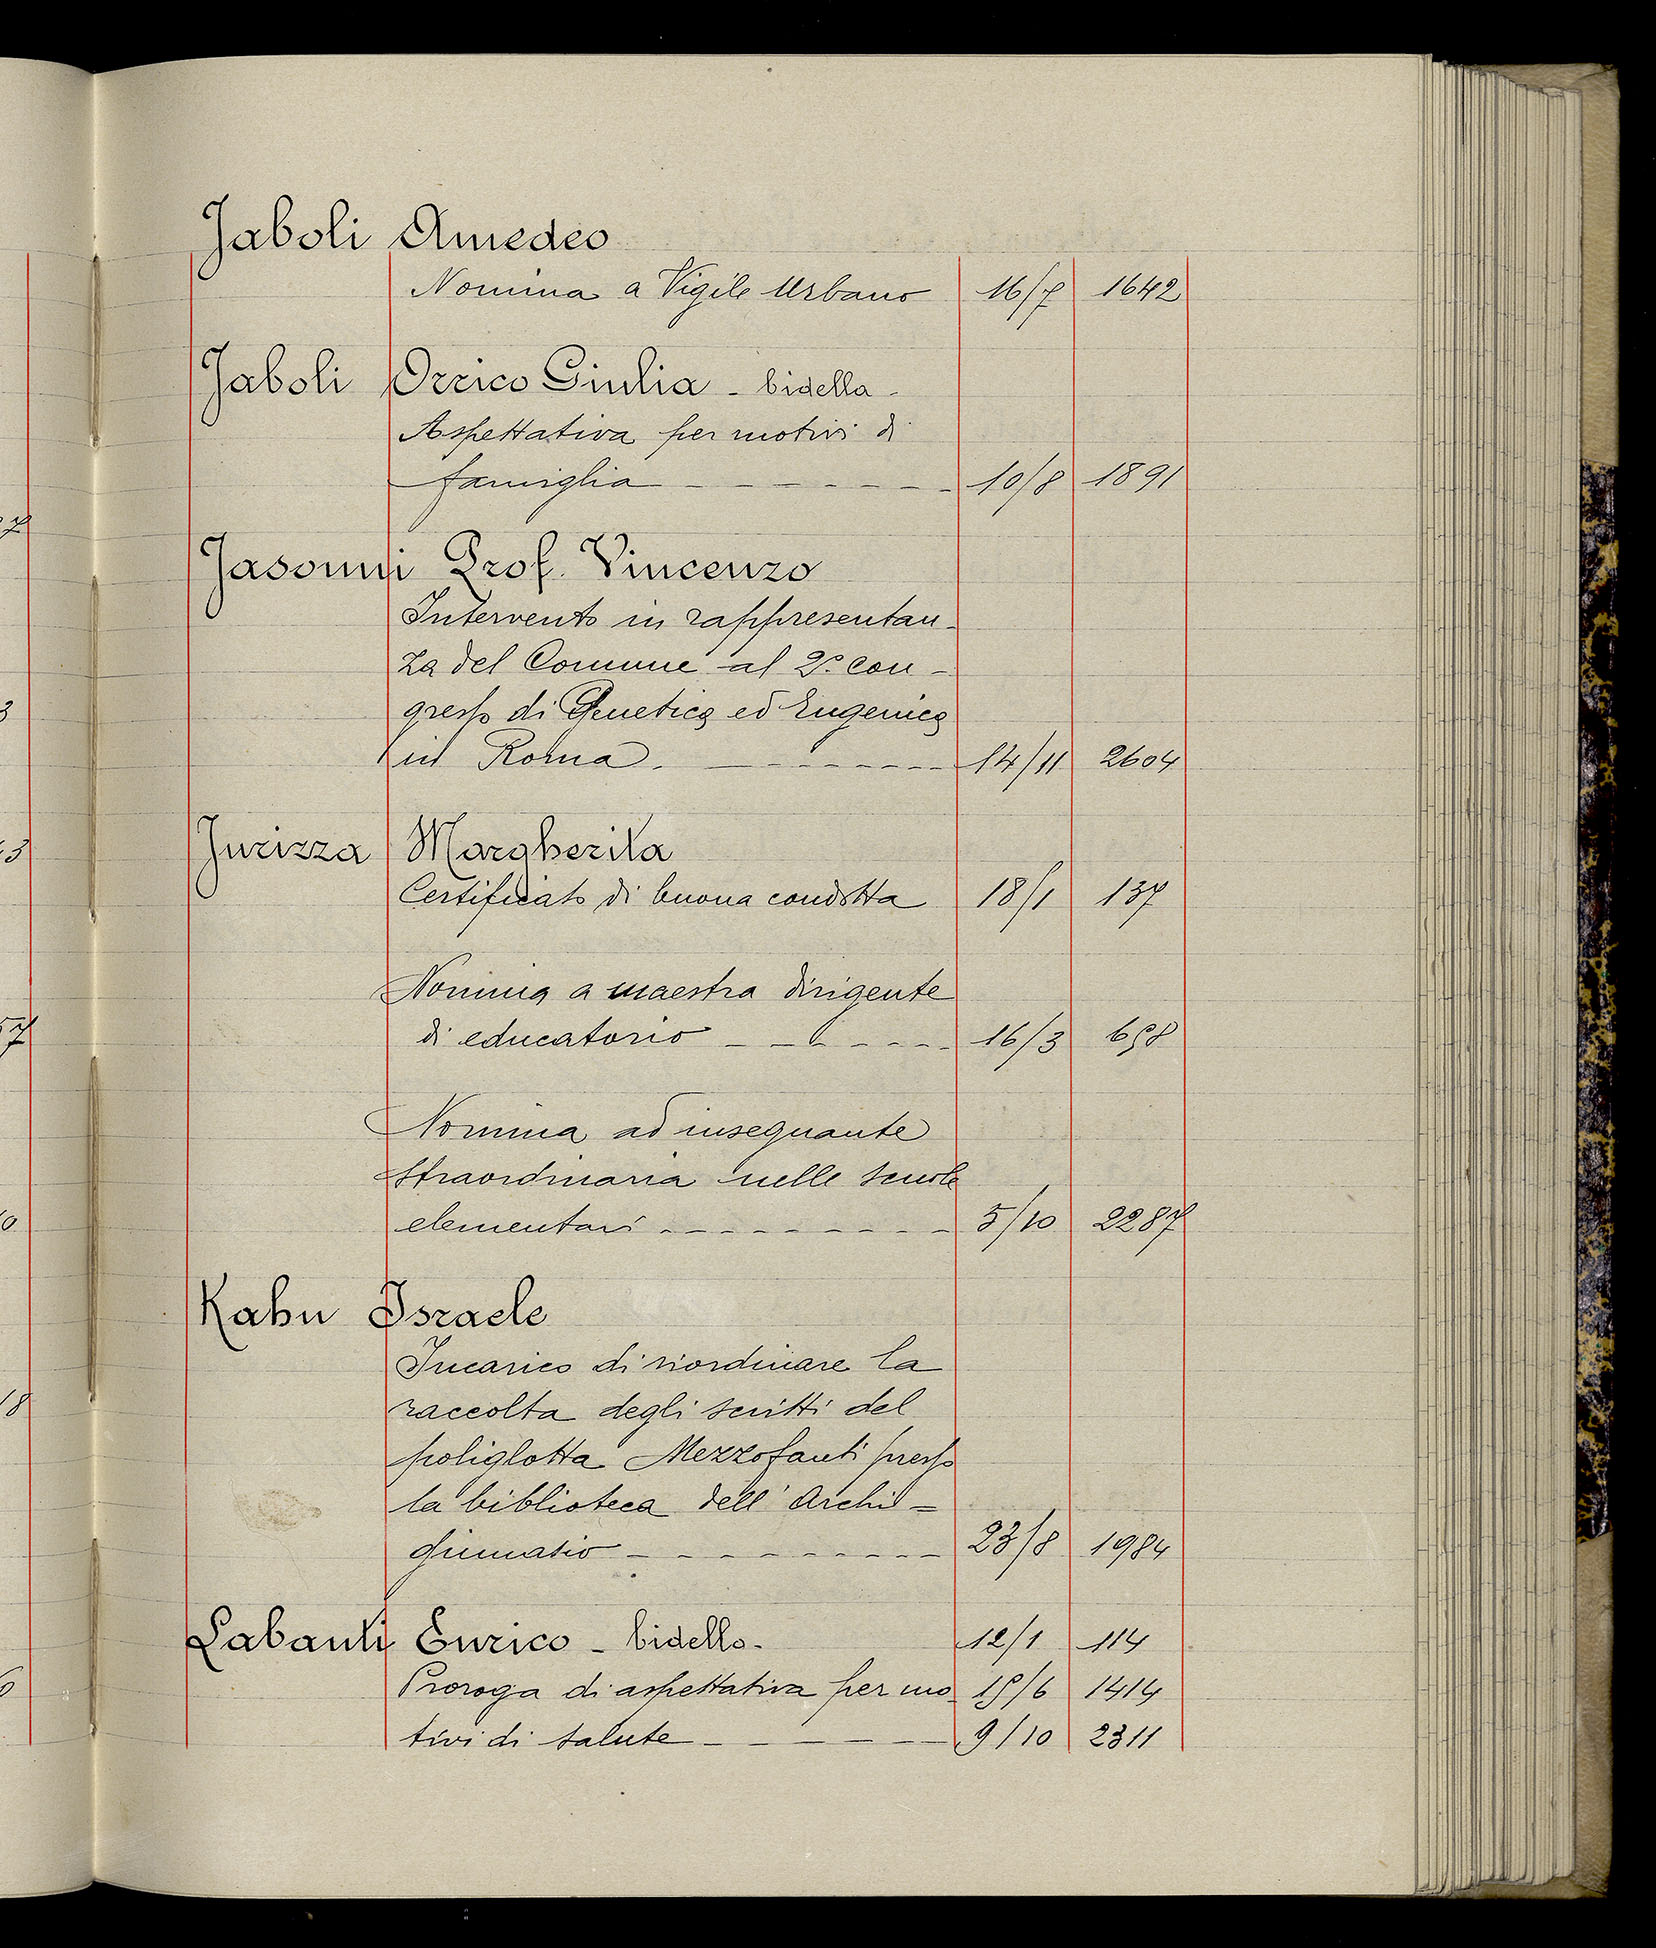 Jaboli Amedeo
Nomina a Vigile Urbano 16/7 1642
Jaboli Orrico Giulia - bidella -
Aspettativa per motivi di
famiglia - - - - - - - 10/8 1891
Jasonni Prof. Vincenzo
Intervento in rappresentan-
za del Comune al 2º con-
gresso di Genetica ed Eugenica
in Roma. - - - - - - - 14/11 2604
Jurizza Margherita
Certificato di buona condotta 18/1 137
Nomina a maestra dirigente
di educatorio - - - - - - 16/3 658
Nomina ad insegnante
straordinaria nelle scuole
elementari - - - - - - - 5/10 2287
Kahn Israele
Incarico di riordinare la
raccolta degli scritti del
poliglotta Mezzofanti presso
la biblioteca dell' Archi=
ginnasio - - - - - - - - 23/8 1984
Labanti Enrico - bidello - 12/1 114
Proroga di aspettativa per mo- 15/6 1414
tivi di salute - - - - - - 9/10 2311